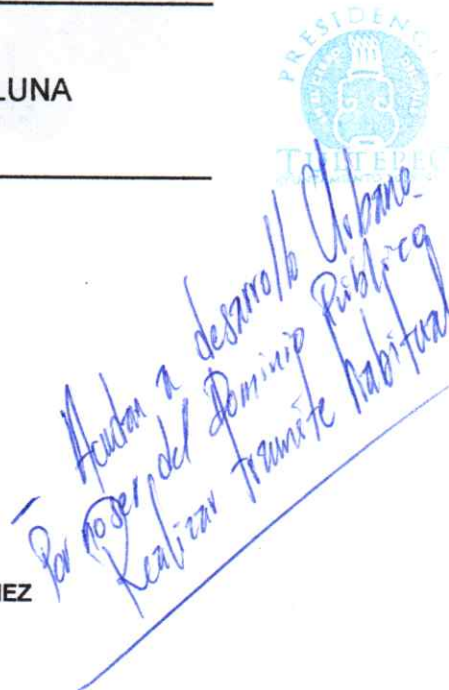 LUNA
PRESIDENCIA
TULTEPEC
- Acudan a desarrollo Urbano.
Por no ser del Dominio Público
Realizar tramite habitual
NEZ